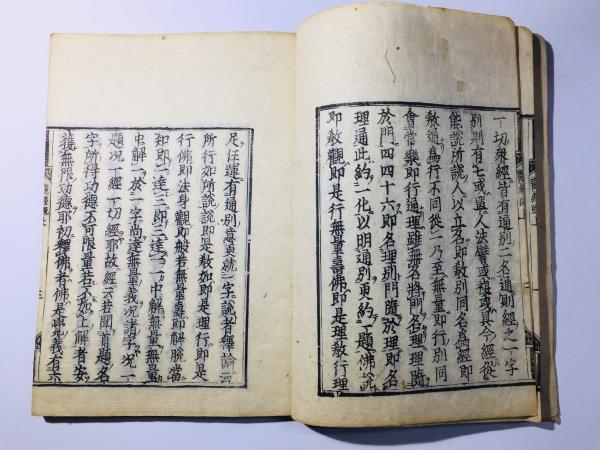 一切衆經皆有通別二名通則經之一字
別則有七或單人法譬或複或具今經從
能說所說人以立名即教別同名爲經即
教通爲行不同從一乃至無量即行別同
會常樂即行通理雖無名將門名理理隨
於門四四十六即名理別門隨於理即名
理通此約一化以明通別更約一題佛說
即教觀即是行無量壽佛即是理教行理
足任運有通別意更就一字說者經論云
所行如所說說即是教如即是理行即是
行佛即法身觀即般若無量壽即解脫當
知即一達三即三達一一中解無量無量
中解一於一字尚達無量義况諸字况一
題况一經一切經耶故經云若聞首題名
字所得功德不可限量若不如上解者安
獲無限功德耶初釋佛者佛是覺義有六